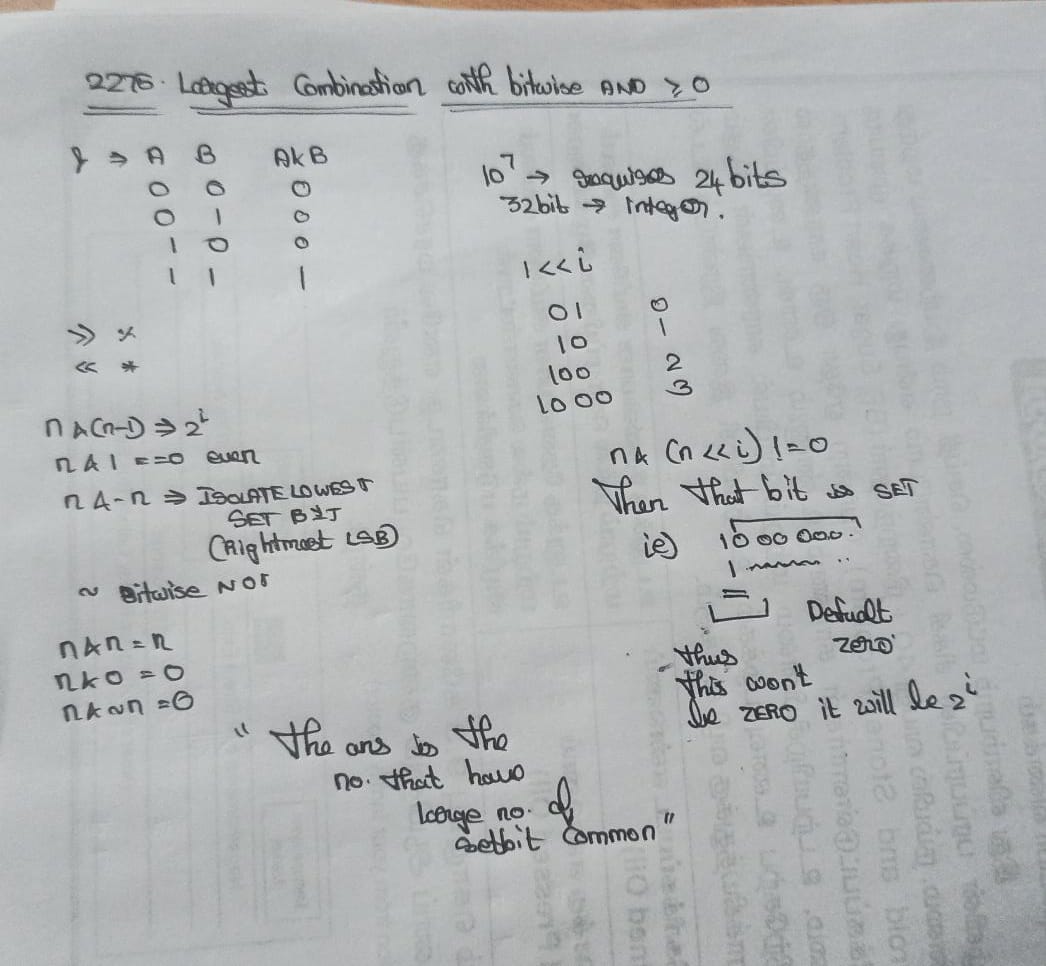 2275. Largest Combination with bitwise AND > 0
& ⇒ A B A&B
0 0 0
0 1 0
1 0 0
1 1 1
>>
<< *
n&(n-1) ⇒ 2^i
n&1 ==0 even
n&-n ⇒ ISOLATE LOWEST
SET BIT
(Rightmost LSB)
~ Bitwise NOT
n&n = n
n&0 = 0
n&~n = 0
10^7 → requires 24 bits
32bit → integer.
1<<i
01 0
10 1
100 2
1000 3
n& (n<<i) !=0
Then that bit is SET
ie) 1000000.
1
=
Defualt
zero
thus
this won't
be ZERO it will be 2^i
"The ans is the
no. that have
large no. of
setbit common"